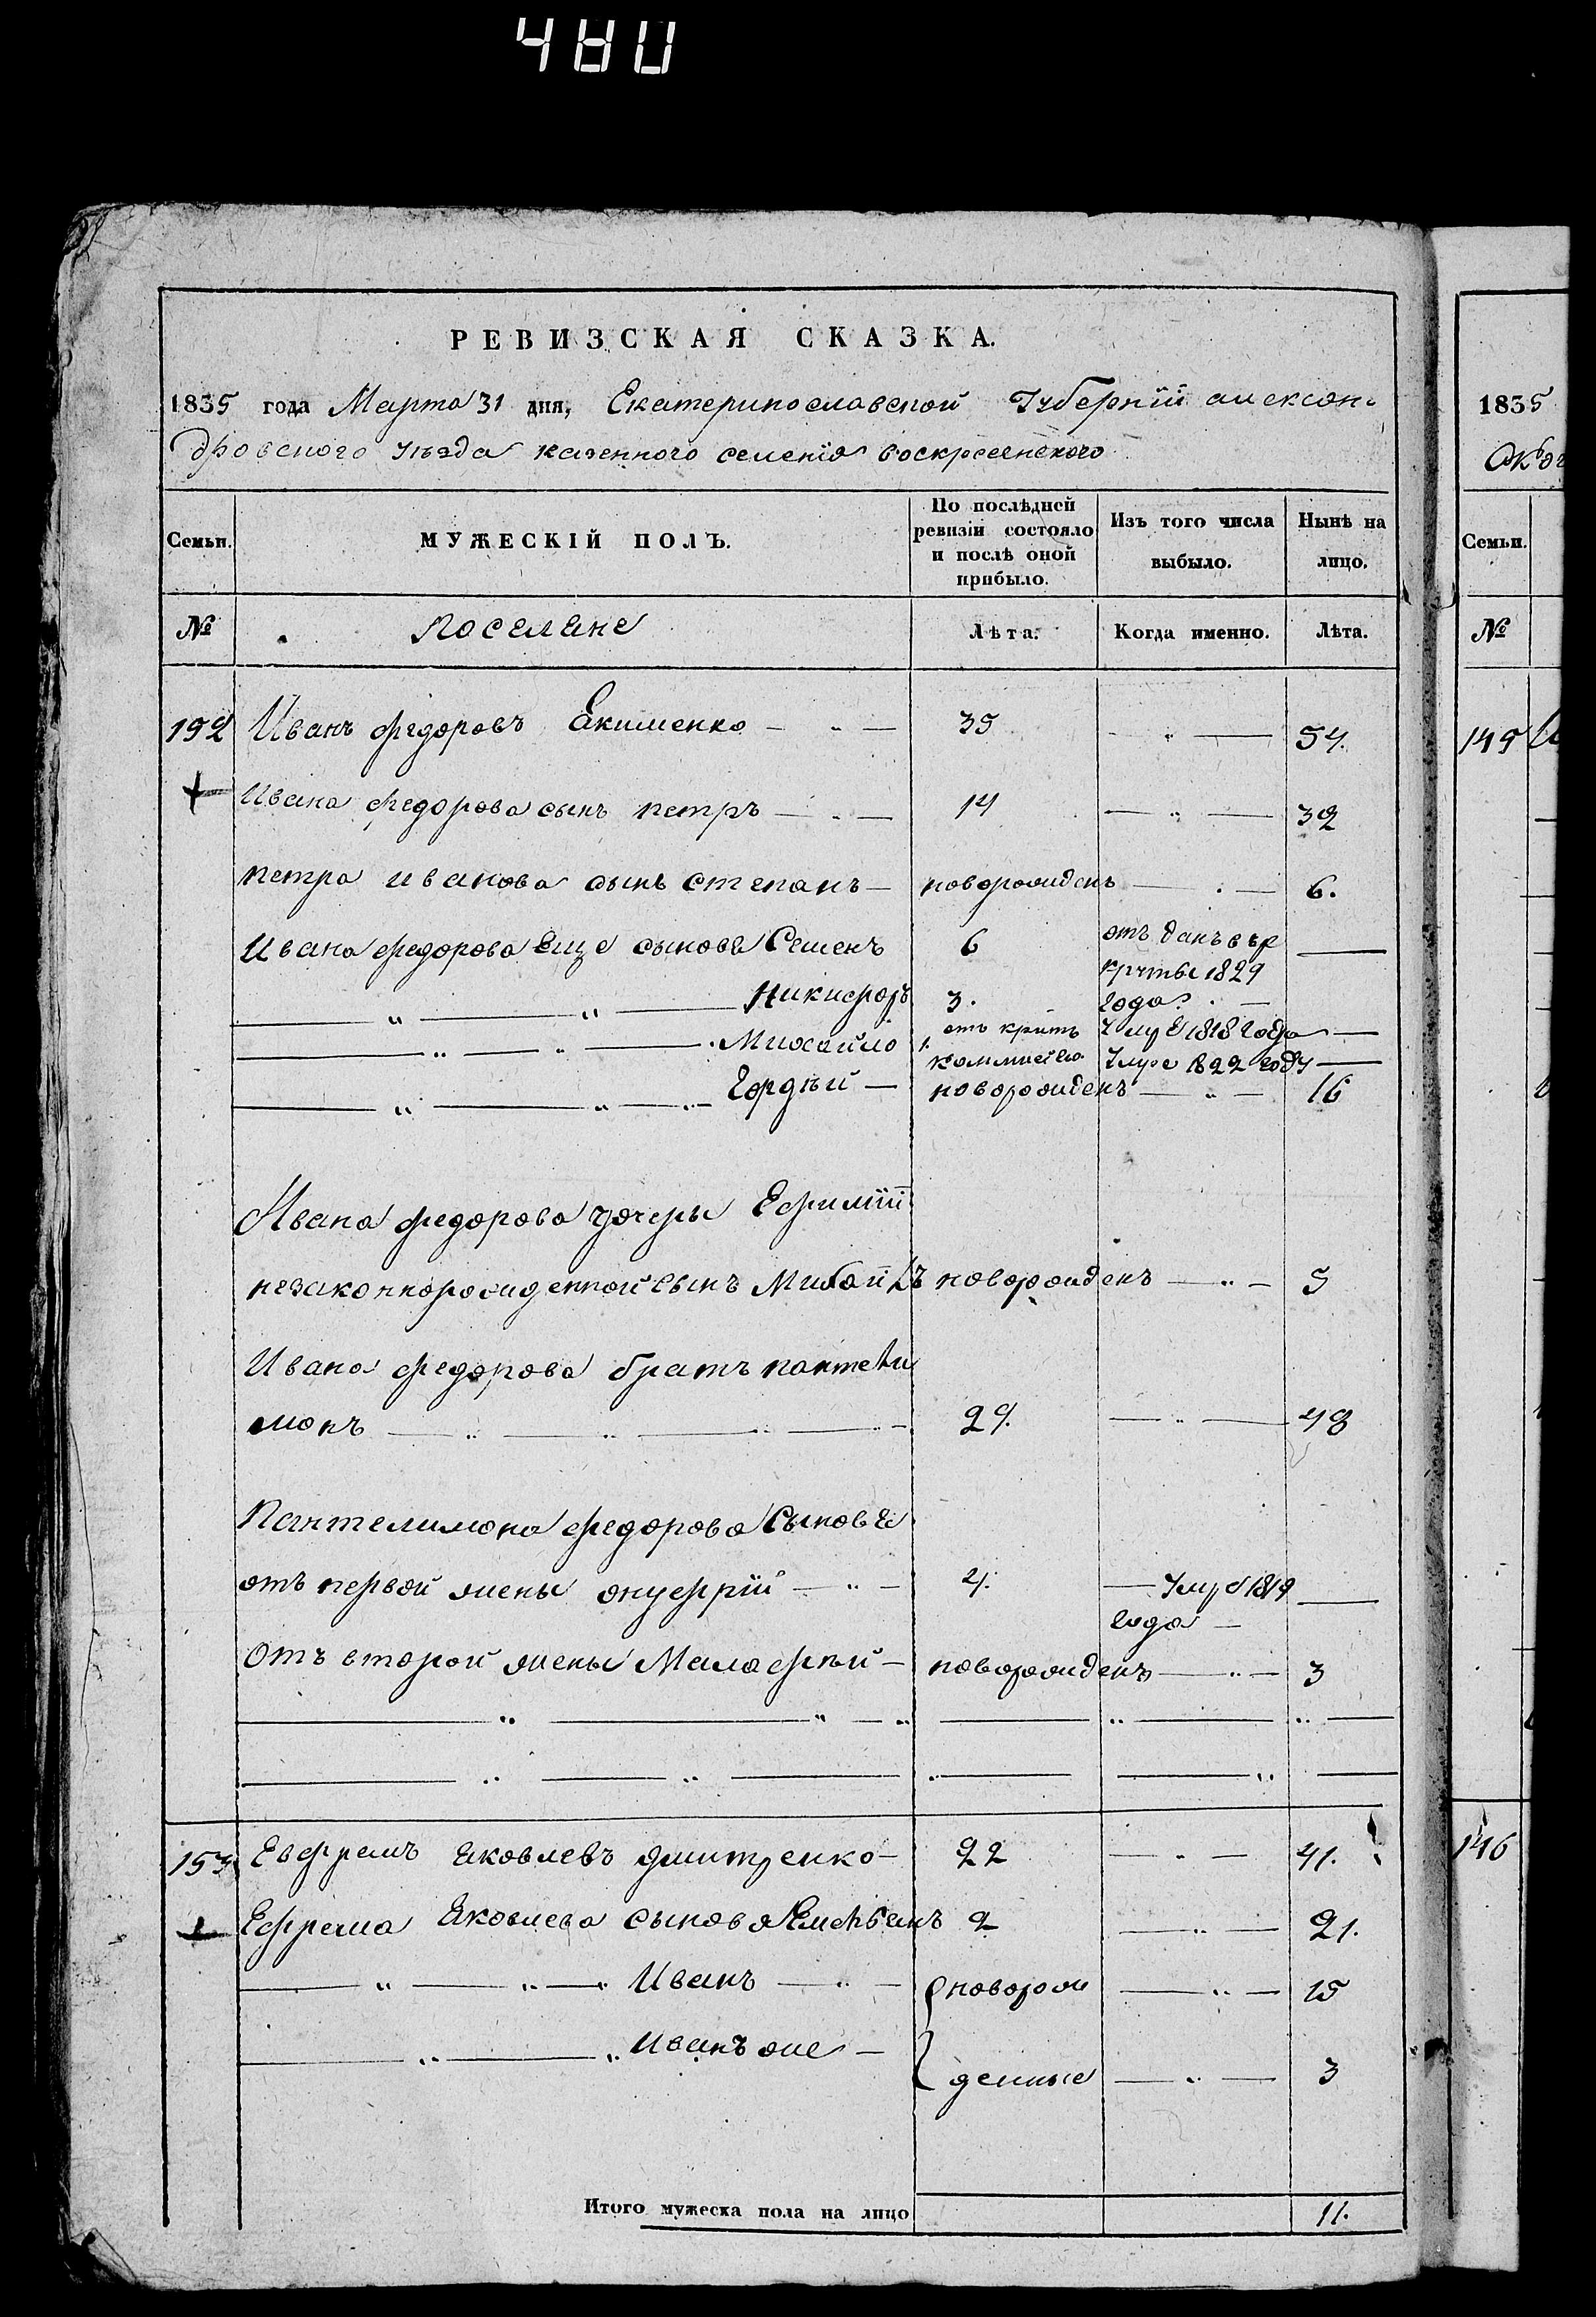 480
РЕВИЗСКАЯ СКАЗКА.
1835 года Марта 31 дня, Екатеринославской Губернiи алексан-
дровского уѣзда казенного селенiя воскресенского
Семьи. МУЖЕСКIЙ ПОЛЪ. По послѣдней ревизiи состояло и послѣ оной прибыло. Изъ того числа выбыло. Нынѣ на лицо.
№ Поселяне Лѣта. Когда именно. Лѣта.
152 Иванъ федоровъ Екименко 35 54.
Ивана федорова сынъ петръ 14 32
петра иванова сынъ степанъ новорожденъ 6.
Ивана федорова Еще сыновя Семенъ 6 отъ данъ в 1829
Никифоръ 3. года
Михайло 1. умре 1818 года
умре 1822 году
Гордѣй новорожденъ 16
Ивана федорова дочеры Ефимiи
незаконнорожденной сынъ Михайлъ новорожденъ 5
Ивана федорова братъ пантели
монъ 29. 48
Пантелимона федорова Сыновя
отъ первой жены онуфрiй 4. умре 1819
года
Отъ второй жены Малафѣй новорожденъ 3
153 Евфремъ Яковлевъ дмитренко 22 41.
Ефрема Яковлева сыновя Емельянъ 2 21.
Иванъ новорож 15
Иванъ же денные 3
Итого мужеска пола на лицо 11.
1835
Семьи.
№
145
146